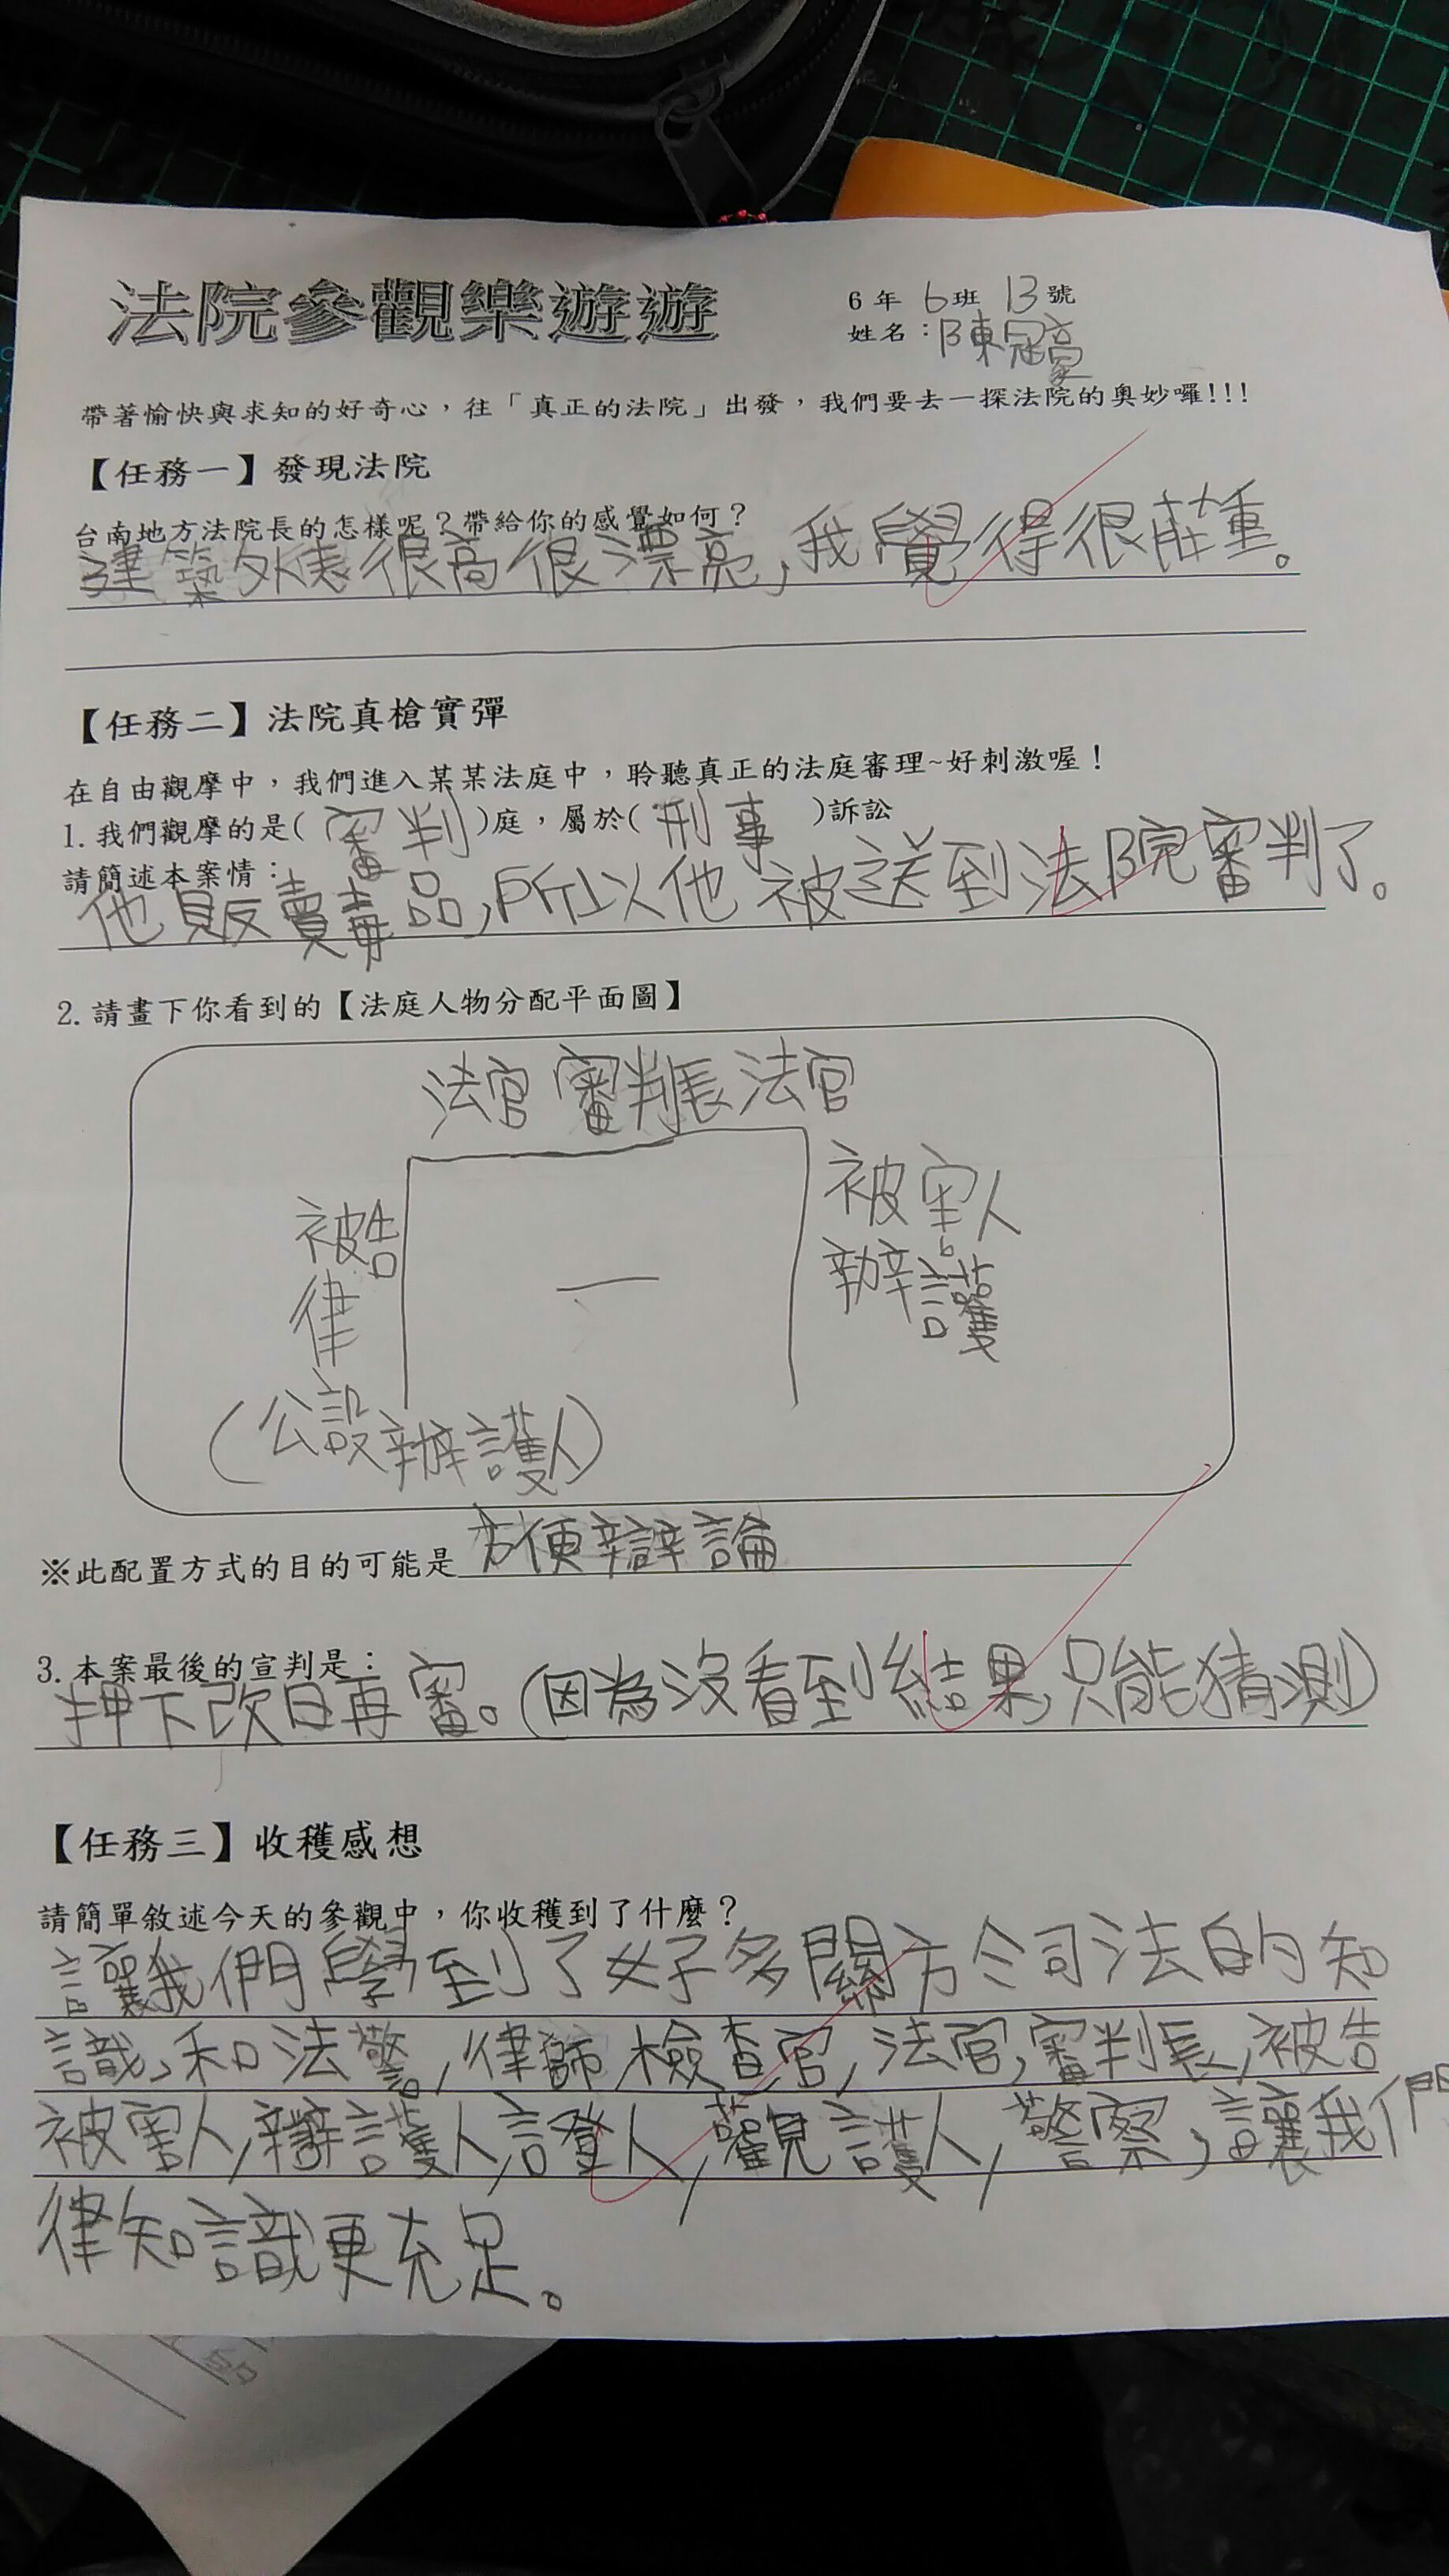 法院參觀樂遊遊
6年 6班 13號
姓名：陳冠豪
帶著愉快與求知的好奇心，往「真正的法院」出發，我們要去一探法院的奧妙囉!!!
【任務一】發現法院
台南地方法院長的怎樣呢？帶給你的感覺如何？
建築外表很高很漂亮，我覺得很莊重。
【任務二】法院真槍實彈
在自由觀摩中，我們進入某某法庭中，聆聽真正的法庭審理~好刺激喔！
1.我們觀摩的是(審判)庭，屬於(刑事)訴訟
請簡述本案情：
他販賣毒品，所以他被送到法院審判了。
2.請畫下你看到的【法庭人物分配平面圖】
法官 審判長 法官
被告
律
(公設辦護人)
被害人
辦護
※此配置方式的目的可能是 方便辯論
3.本案最後的宣判是：
押下改日再審。(因為沒看到結果，只能猜測)
【任務三】收穫感想
請簡單敘述今天的參觀中，你收穫到了什麼？
讓我們學到了好多關於司法的知
識，和法警，律師，檢查官，法官，審判長，被告
被害人，辯護人，證人，觀護人，警察，讓我們
律知識更充足。